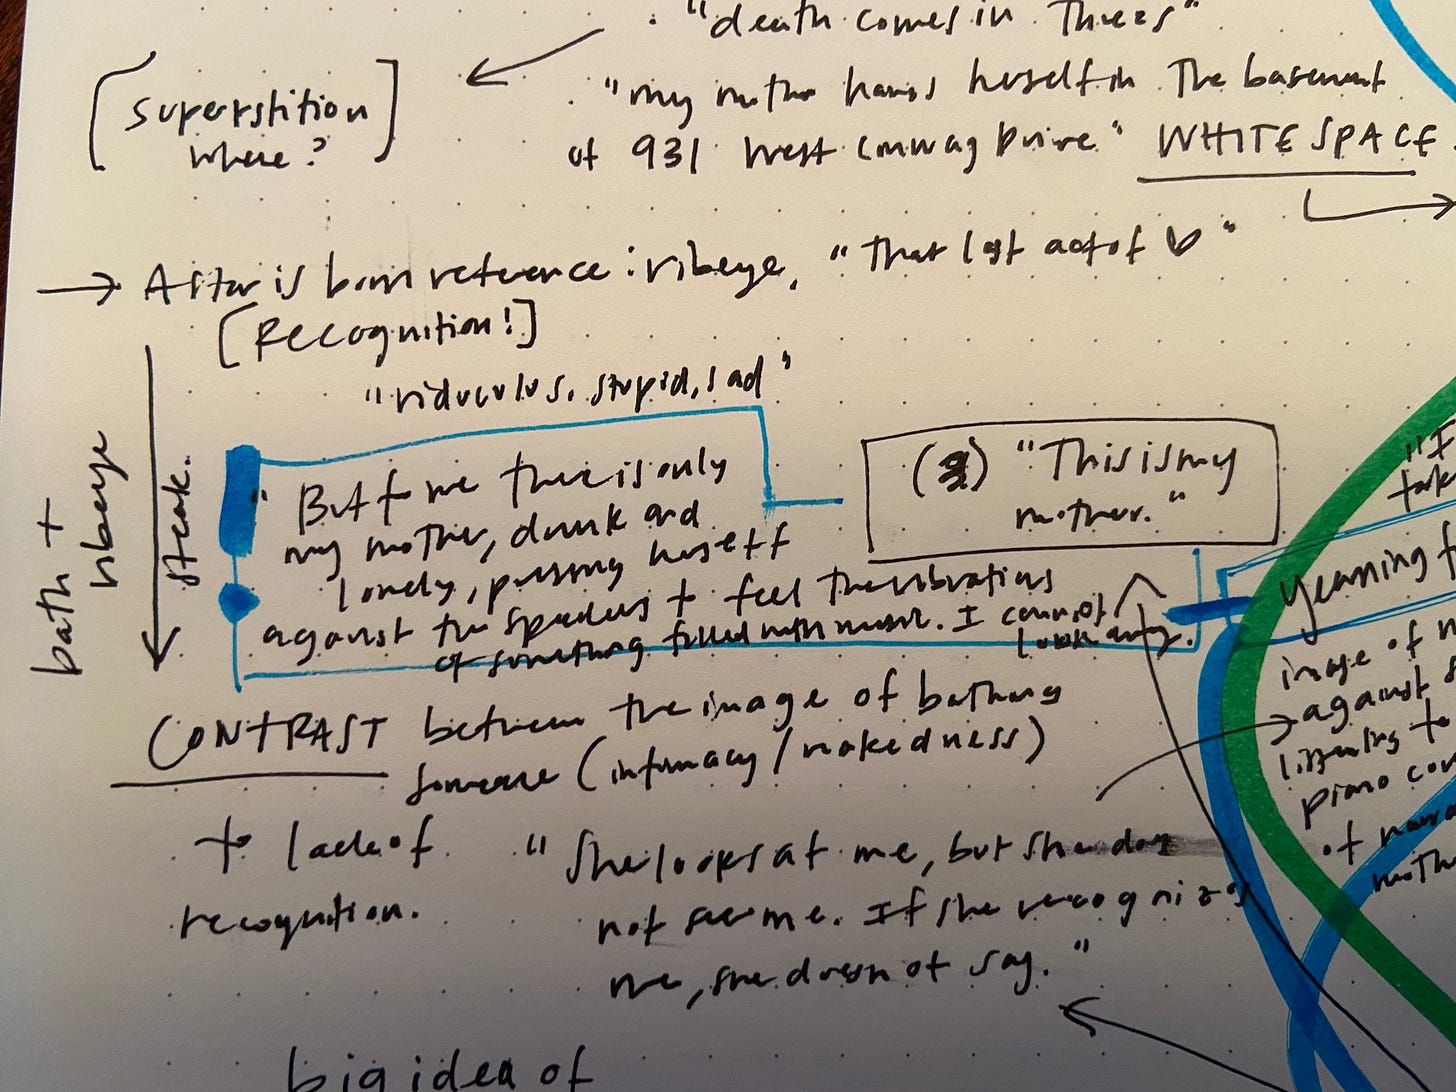 . "death comes in Threes"
[Superstition
where?]
. "my mother hangs herself in The basement
of 931 West Conway Drive" WHITE SPACE.
→ A star is born reference: ribeye, "That last act of ♡"
[Recognition!]
"riduculus, stupid, sad"
bath +
ribeye
steak.
"But for me there is only
my mother, drunk and
lonely, pressing herself
against the speakers to feel the vibrations
of something filled with music. I cannot
look away.
(2) "This is my
mother."
"I
yearning f
image of
against s
listening to
piano con
of narra
moth
CONTRAST between the image of bathing
someone (intimacy/nakedness)
to lack of
recognition.
"She looks at me, but she does
not see me. If she recognizes
me, she does not say."
big idea of